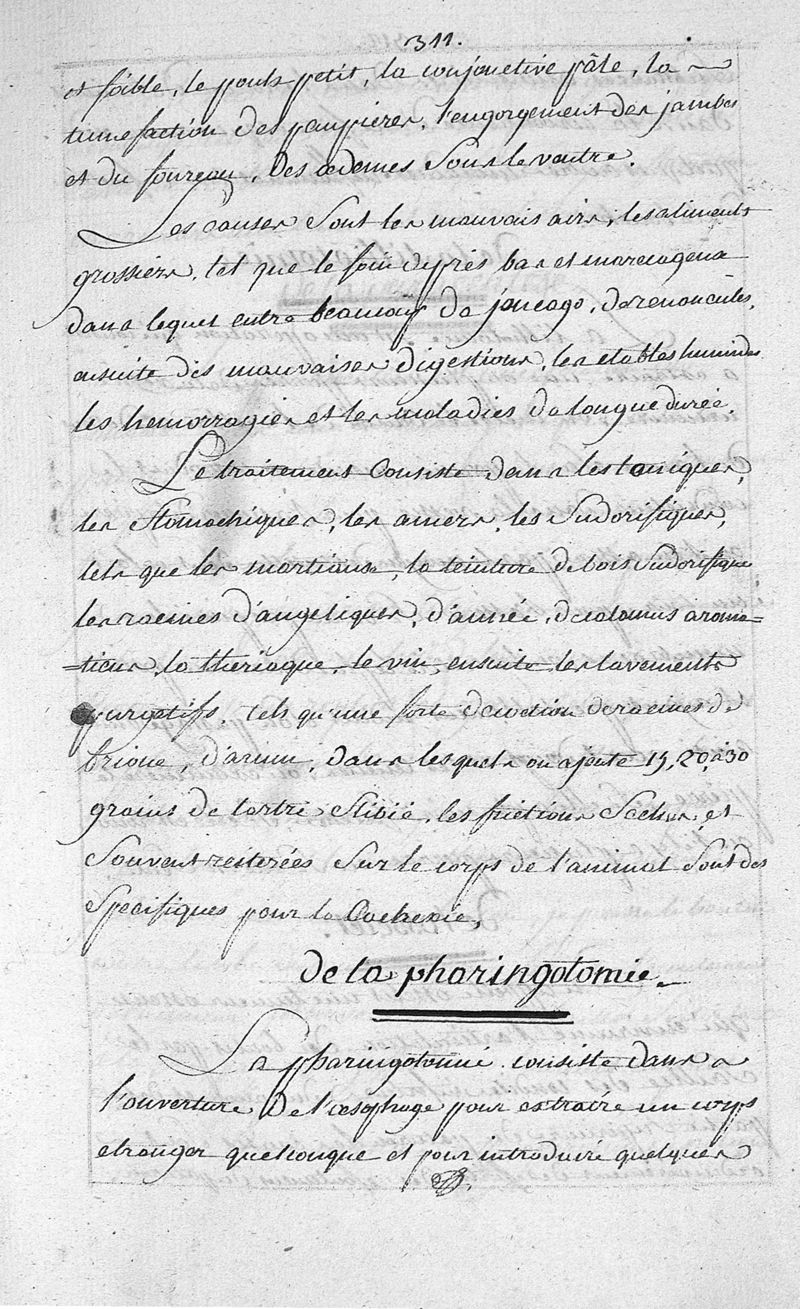 311.
et foible, le pouls petit, la conjonctive pâle, la
tumefaction des paupieres, l'engorgement des jambes
et du foureau, des œdemes sous le ventre.
Les causes sont les mauvais airs, les aliments
grossiers, tel que le foin de prés bas et marecageux
dans lequel entre beaucoup de joncago, de renoncules,
ensuite des mauvaises digestions, les etables humides
les hemorragies et les maladies de longue durée.
Le traitement consiste dans les toniques,
les stomachiques, les amers, les sudorifiques,
tels que les martiaux, la teinture de bois sudorifique
les racines d'angeliques, d'aunée, de calamus aroma=
=ticus, la theriaque, le vin, ensuite les lavements
purgatifs, tels qu'une forte decoction de racines de
brione, d'arum, dans lesquels on ajoute 15, 20, à 30
grains de tartre stibié, les frictions seches, et
souvent reiterées sur le corps de l'animal sont des
specifiques pour la Cachexie.
De la pharingotomie.
La pharingotomie consiste dans
l'ouverture de l'œsophage pour extraire un corps
etranger quelconque et pour introduire quelques